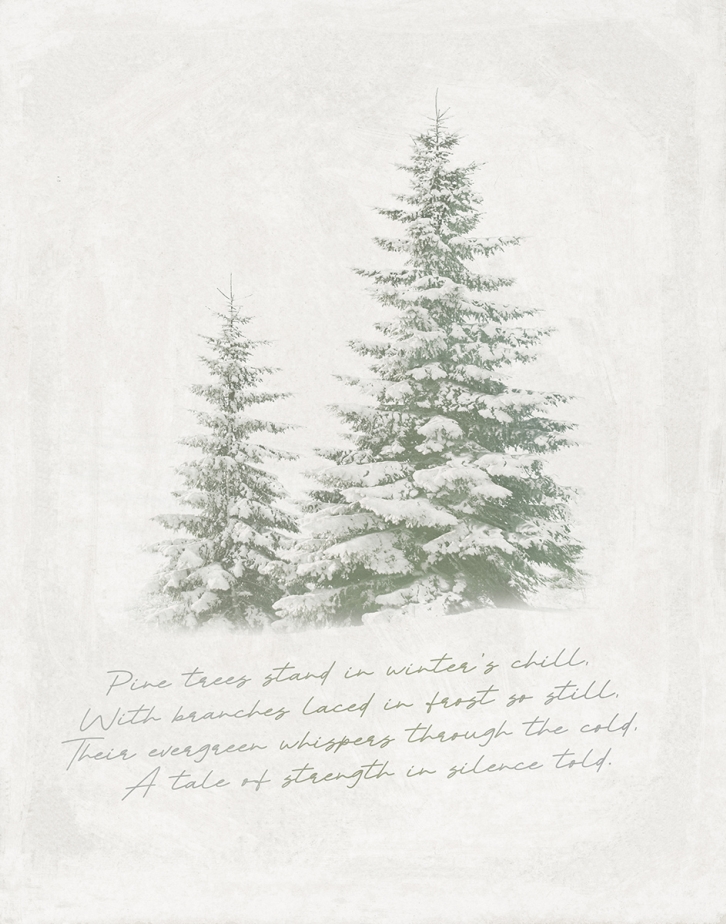 Pine trees stand in winter's chill,
With branches laced in frost so still,
Their evergreen whispers through the cold,
A tale of strength in silence told.